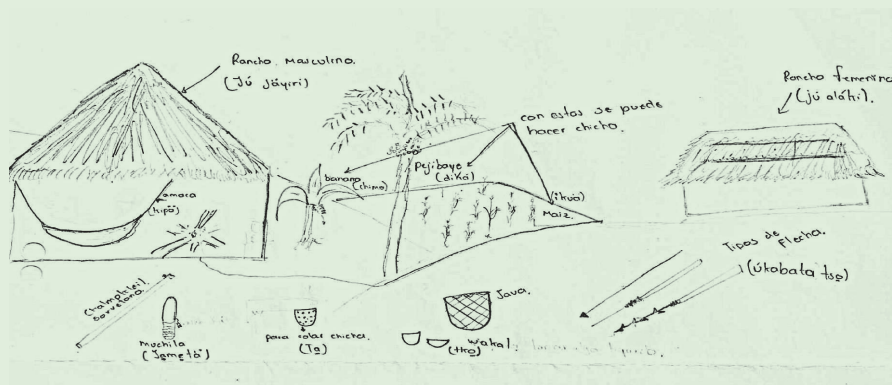 Rancho Masculino.
(Jú Jäyïrï)
Rancho femenino
(jú aláhi).
con estas se puede
hacer chicha.
Pejibaye
(dikó)
banano
(chimo)
(ikuö)
Maiz.
amaca
(kipö)
Tipos de Flecha.
(úkabata tso̱)
cervetana
Muchila
(Ja̱meto̱)
para colar chicha.
(Ta̱)
Java.
wakal
(tko̱)